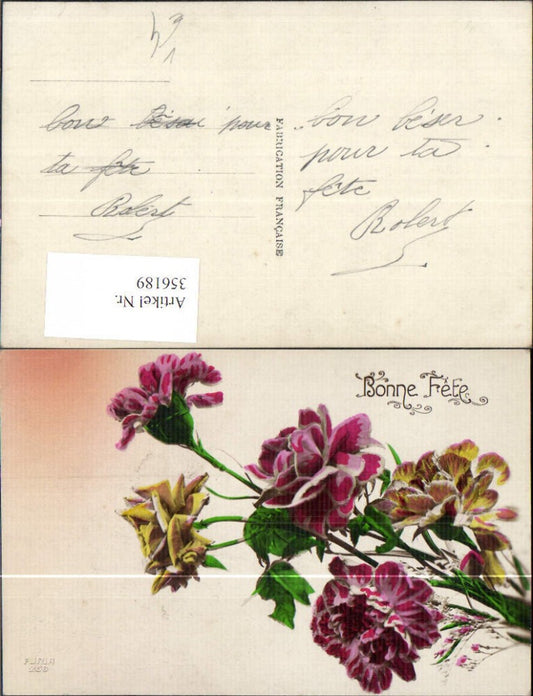 bons bésai pour
ta fête
Robert
FABRICATION FRANÇAISE
bon béser
pour ta
fête
Robert
Artikel Nr.
356189
Bonne Fête
FURIA